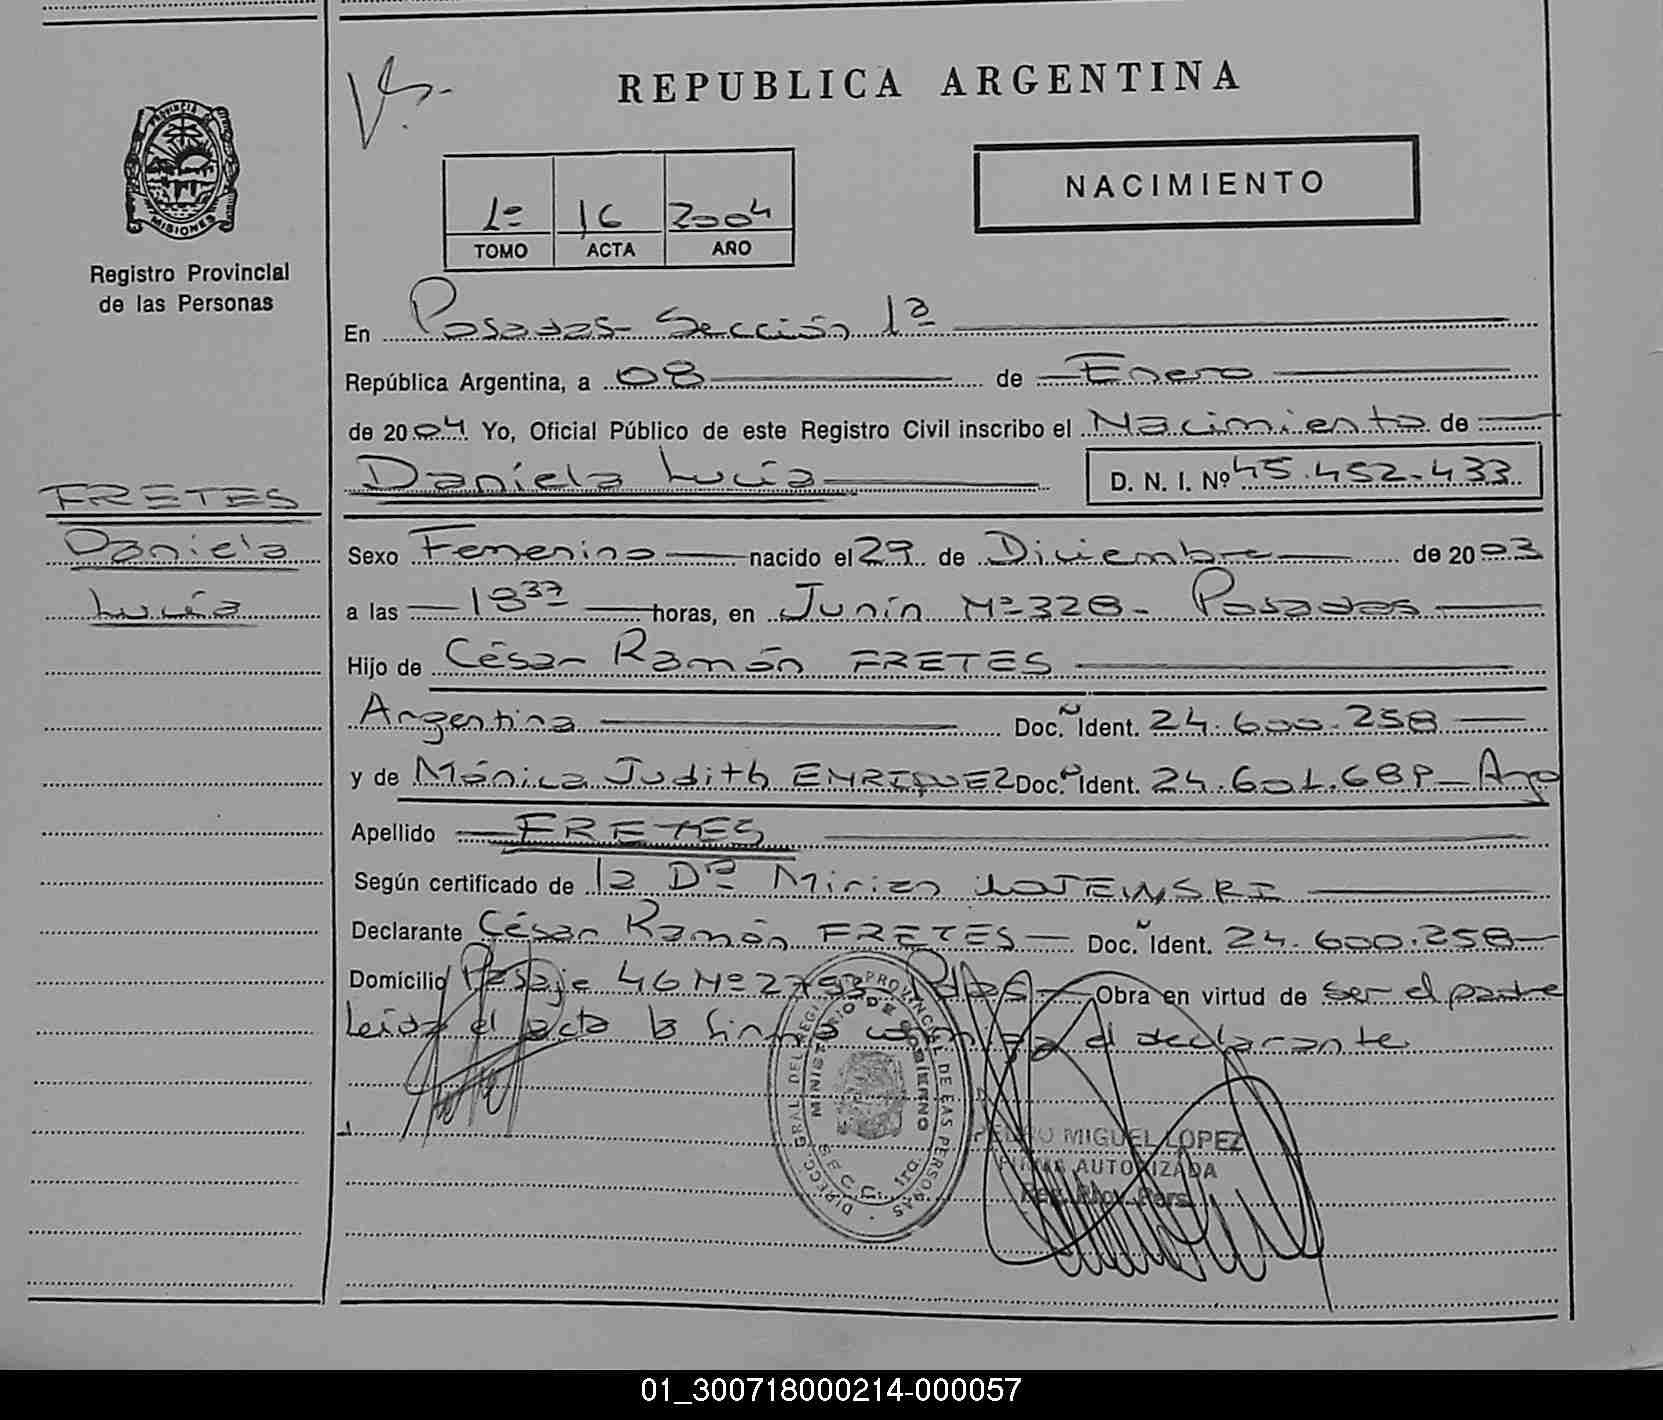 REPUBLICA ARGENTINA
PROVINCIA DE MISIONES
Registro Provincial
de las Personas
NACIMIENTO
1º 16 2004
TOMO ACTA AÑO
En Posadas- Sección 1ª
República Argentina, a 08 de Enero
de 2004 Yo, Oficial Público de este Registro Civil inscribo el Nacimiento de
Daniela Lucía D. N. I. Nº 45.452.433
FRETES
Daniela
Lucía
Sexo Femenino nacido el 29 de Diciembre de 2003
a las 18 37 horas, en Junín Nº 328- Posadas
Hijo de César Ramón FRETES
Argentina Doc. Ident. 24.600.258
y de Mónica Judith ENRIQUEZ Doc. Ident. 24.601. - Arg
Apellido FRETES
Según certificado de la Drª Mirian
Declarante César Ramón FRETES Doc. Ident. 24.600.258
Domicilio Pasaje 46 Nº Pdas Obra en virtud de ser el padre
Leída el acta la firma conmigo el declarante
DIRECC. GRAL. DEL REGISTRO PROVINCIAL DE LAS PERSONAS
MINISTERIO DE GOBIERNO
SECC. 1ra.
PEDRO MIGUEL LOPEZ
FIRMA AUTORIZADA
Reg. Prov. Pers.
01_300718000214-000057